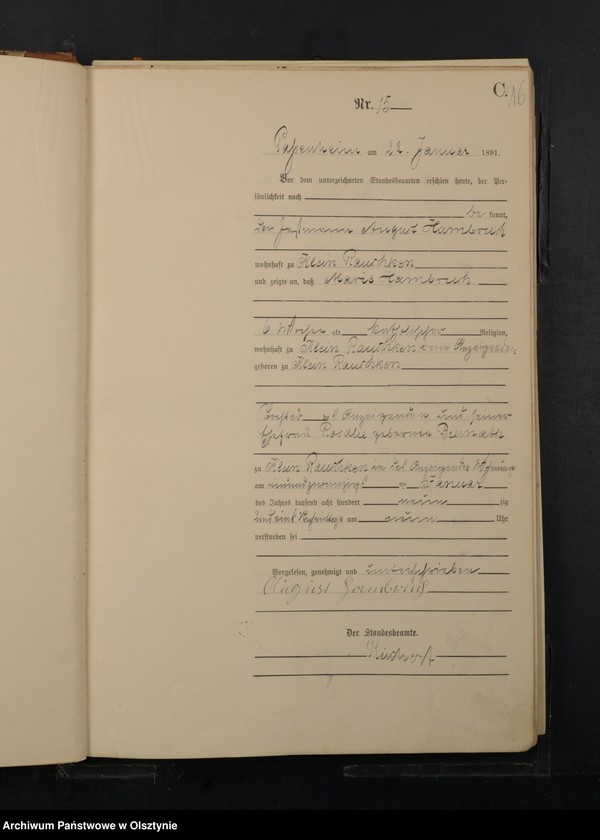 C. 16
Nr. 15
Passenheim am 22. Januar 1891.
Vor dem unterzeichneten Standesbeamten erschien heute, der Per-
sönlichkeit nach
be kannt,
der August Hambruch
wohnhaft zu Klein Rauschken
und zeigte an, daß Marie Hambruch
6 Wochen alt katholischer Religion,
wohnhaft zu Klein Rauschken
geboren zu Klein Rauschken
Tochter des Anzeigenden und seiner
Ehefrau Rosalie geborene
zu Klein Rauschken in des Anzeigenden Wohnung
am Januar
des Jahrs tausend acht hundert neun zig
und eins am neun Uhr
verstorben sei
Vorgelesen, genehmigt und unterschrieben
August Hambruch
Der Standesbeamte.
Archiwum Państwowe w Olsztynie